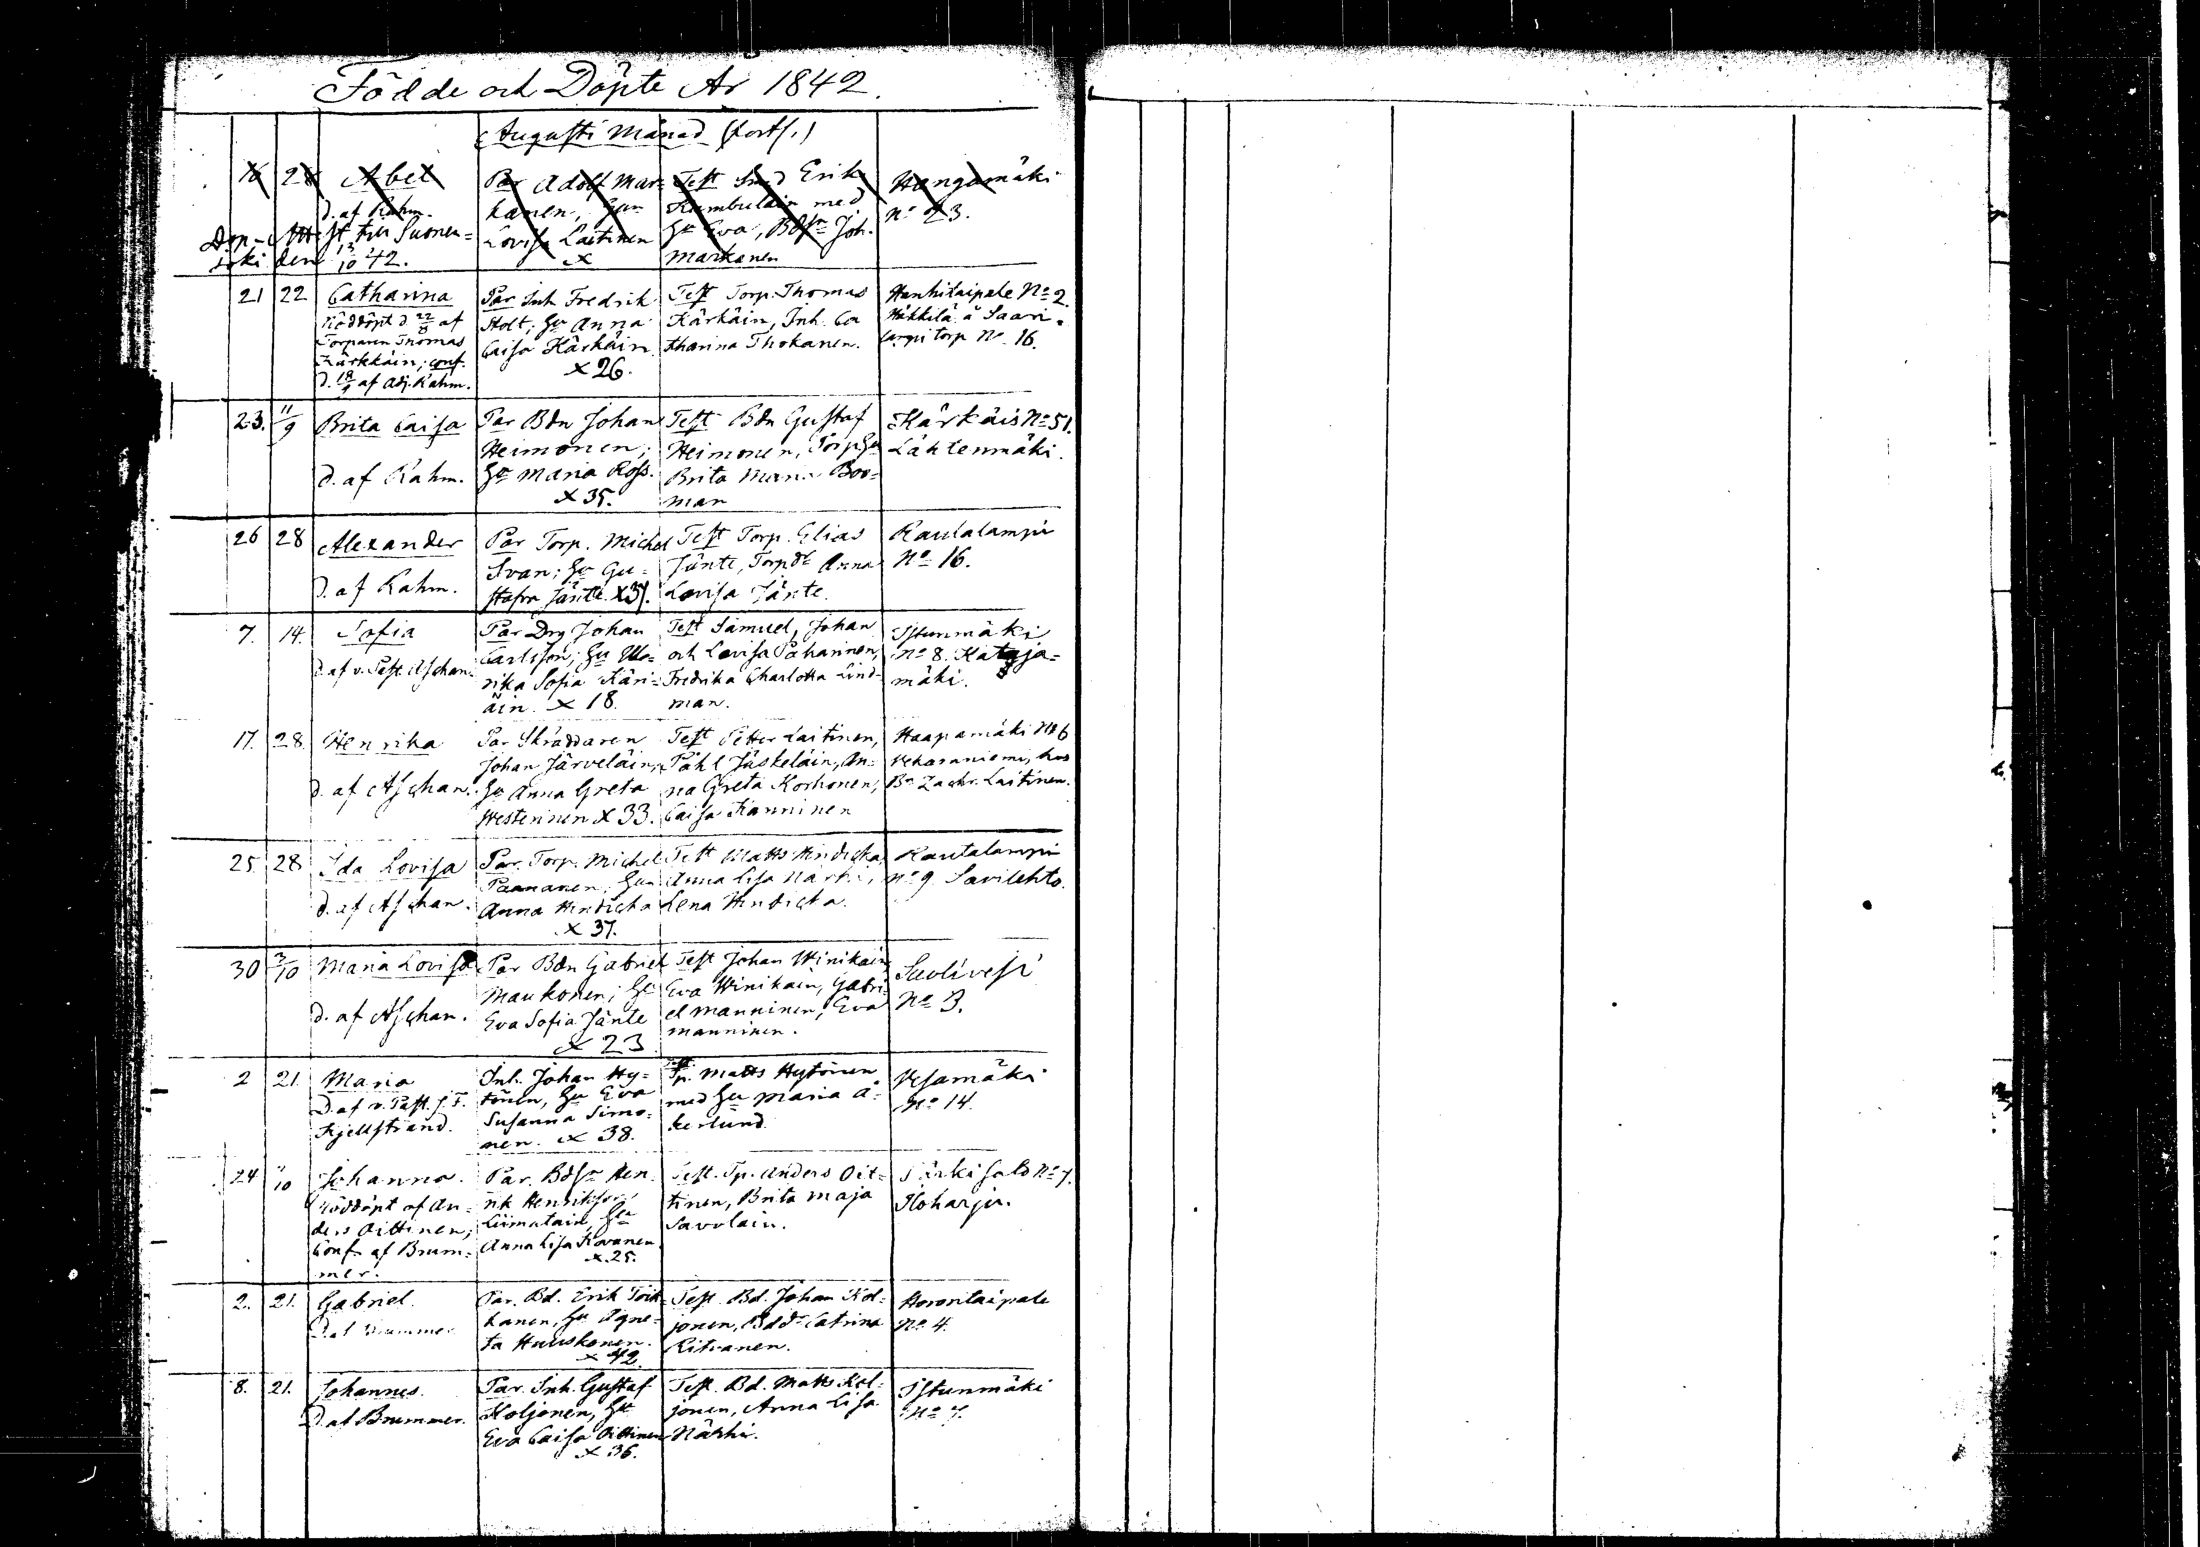 Födde och Döpte År 1842.
Augusti Månad (forts.)
18 28 Abel
d. af Rahm.
Dop-Att-st till Suonen=
joki den 13/10 42.
Par Adolf Mar=
kanen, Hu
Lovisa Laitinen
x
Test Smed Erik
Kumbulain med
Hu Eva, Bdsn Joh.
Markanen
Hangamäki
No 23.
21 22 Catharina
Nöddöpt d. 22/8 af
Torparen Thomas
Kärkkäin; conf.
d. 18/9 af Adj. Rahm.
Par Inh Fredrik
Holt; Hu Anna
Caisa Kärkäin
x 26.
Test Torp. Thomas
Kärkäin, Inh. Ca
tharina Thokanen.
Hankitaipale No 2.
Häkkilä å Saari=
lampi torp No 16.
23. 11/9 Brita Caisa
d. af Rahm.
Par Bdn Johan
Heimonen;
Hu Maria Ross.
x 35.
Test Bdn Gustaf
Heimonen, Torp Hu
Brita Maria Boo=
man
Kärkäis No 51.
Lähtenmäki.
26 28 Alexander
d. af Rahm.
Par Torp. Michel
Svan; Hu Gu=
stafva Jänte. x 37.
Test Torp. Elias
Jänte, Torpdr Anna
Lovisa Jänte.
Rautalampi
No 16.
7. 14. Sofia
d. af v. Past. Aschan.
Par Drg Johan
Carlsson; Hu Ulo=
rika Sofia Käri=
äin. x 18.
Test Samuel, Johan
och Lovisa Pahannen,
Fredrika Charlotta Lind=
man.
Istunmäki
No 8. Kataja=
mäki.
17. 28. Henrika
d. af Aschan.
Par Skräddaren
Johan Järveläin,
Hu Anna Greta
Westerinen x 33.
Test Petter Laitinen,
Påhl Jäskeläin, An=
na Greta Korhonen,
Caisa Kanninen
Haapamäki No 6
Vekaraniemi, hos
Bn Zachr. Laitinen.
25 28 Ida Lovisa
d. af Aschan.
Par Torp. Michel
Paananen; Hu
Anna Hindicka
x 37.
Test Matts Hindicka,
Anna Lisa Närhi,
Lena Hindicka.
Rautalampi
No 9 Savilehto.
30 3/10 Maria Lovisa
d. af Aschan.
Par Bdn Gabriel
Maukonen; Hu
Eva Sofia Jänte
x 23
Test Johan Winikain
Eva Winikain, Gabri=
el Manninen, Eva
Manninen.
Suolivesi
No 3.
2 21. Maria
D. af v. Past. J. F.
Kjellstrand.
Inh. Johan Hy=
tönen, Hu Eva
Susanna Simo=
nen. x 38.
Test Tp. Matts Hytönen
med Hu Maria Å=
kerlund.
Vesamäki
No 14.
24 "/10 Johanna.
Nöddöpt af An=
ders Oittinen;
Conf. af Brum=
mer.
Par. Bdsn Hen
rik Henriksson
Liimatain, Hu
Anna Lisa Kovanen
x 25.
Test. Tp. Anders Oit=
tinen, Brita Maja
Savolain.
Särkisalo No 7.
Iloharju.
2. 21. Gabriel.
D. af Brummer.
Par. Bd. Erik Toik=
kanen, Hu Agne=
ta Huuskonen.
x 42
Test. Bd. Johan Kol=
jonen, Bddr Catrina
Ritvanen.
Horontaipale
No 4.
8. 21. Johannes.
D. af Brummer.
Par. Inh. Gustaf
Koljonen, Hu
Eva Caisa Oittinen
x 36.
Test. Bd. Matts Kol=
jonen, Anna Lisa
Närhi.
Istunmäki
No 7.